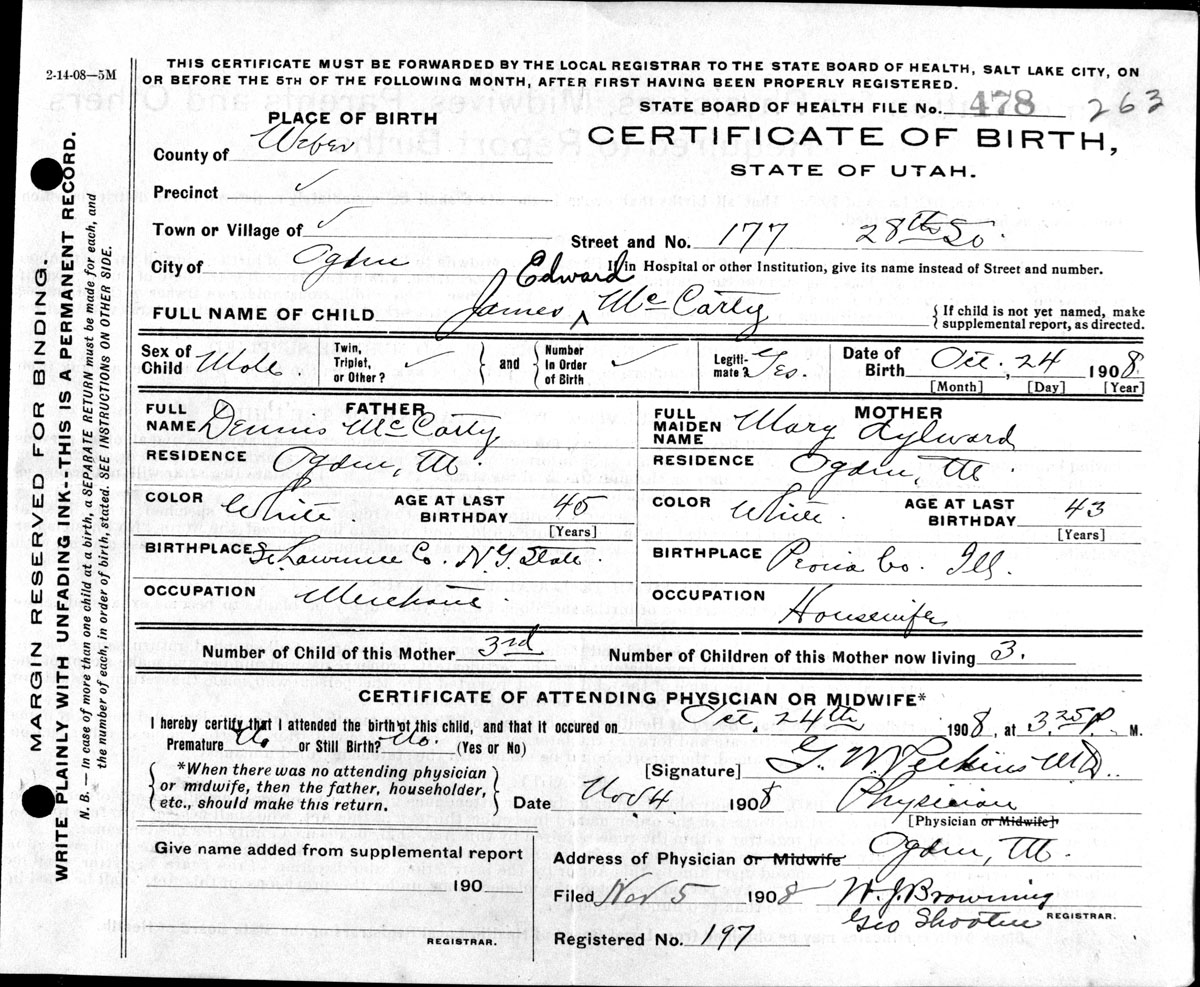 2-14-08—5M
THIS CERTIFICATE MUST BE FORWARDED BY THE LOCAL REGISTRAR TO THE STATE BOARD OF HEALTH, SALT LAKE CITY, ON
OR BEFORE THE 5TH OF THE FOLLOWING MONTH, AFTER FIRST HAVING BEEN PROPERLY REGISTERED.
STATE BOARD OF HEALTH FILE No. 478 263
PLACE OF BIRTH
CERTIFICATE OF BIRTH,
STATE OF UTAH.
County of Weber
Precinct ✓
Town or Village of ✓
Street and No. 177 28th So
City of Ogden
If in Hospital or other Institution, give its name instead of Street and number.
Edward
FULL NAME OF CHILD James ^ McCarty
{ If child is not yet named, make
supplemental report, as directed.
Sex of Child Male
Twin, Triplet, or Other? ✓
and
Number In Order of Birth ✓
Legitimate? Yes.
Date of Birth Oct. 24 1908
[Month] [Day] [Year]
FATHER
FULL NAME Dennis McCarty
RESIDENCE Ogden, Ut.
COLOR White.
AGE AT LAST BIRTHDAY 45
[Years]
BIRTHPLACE St Lawrence Co. N.Y. State.
OCCUPATION Merchant
MOTHER
FULL MAIDEN NAME Mary Aylward
RESIDENCE Ogden, Ut
COLOR White.
AGE AT LAST BIRTHDAY 43
[Years]
BIRTHPLACE Peoria Co. Ill.
OCCUPATION Housewife
Number of Child of this Mother 3rd
Number of Children of this Mother now living 3.
CERTIFICATE OF ATTENDING PHYSICIAN OR MIDWIFE*
I hereby certify that I attended the birth of this child, and that it occured on Oct. 24th 1908, at 3.25 P. M.
Premature No or Still Birth? No. (Yes or No)
*When there was no attending physician
or midwife, then the father, householder,
etc., should make this return.
[Signature] G. W. Perkins MD.
Date Nov 4 1908 Physician
[Physician or Midwife]
Give name added from supplemental report
190
REGISTRAR.
Address of Physician or Midwife Ogden, Ut.
Filed Nov 5 1908 W. J. Browning
REGISTRAR.
Geo
Registered No. 197
MARGIN RESERVED FOR BINDING.
WRITE PLAINLY WITH UNFADING INK--THIS IS A PERMANENT RECORD.
N. B.— In case of more than one child at a birth, a SEPARATE RETURN must be made for each, and
the number of each, in order of birth, stated. SEE INSTRUCTIONS ON OTHER SIDE.